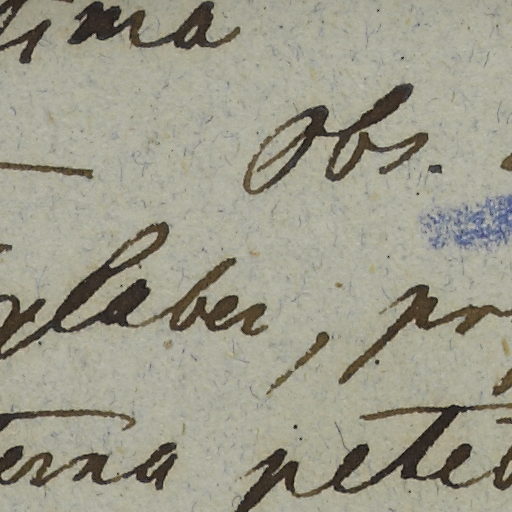 tima
— Obs.
glaber, pr
terna peteb